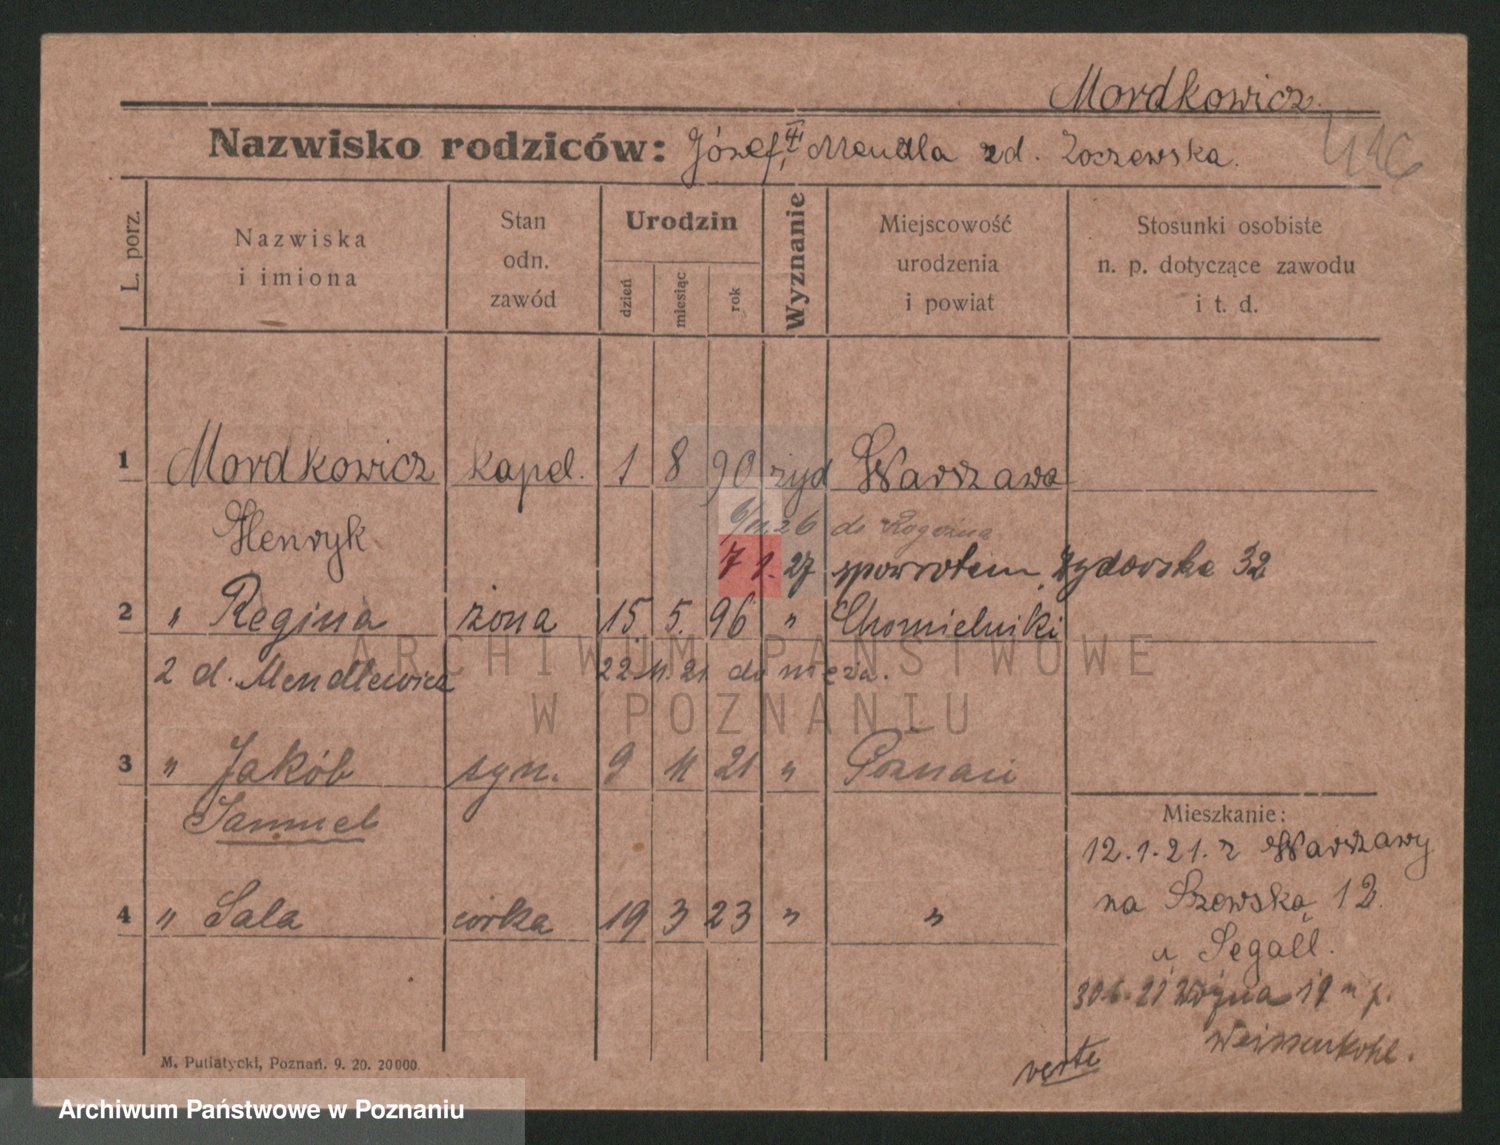 Mordkowicz.
Nazwisko rodziców: Józef, Mendla zd. Zoczewska.
L. porz.
Nazwiska
i imiona
Stan
odn.
zawód
Urodzin
dzień
miesiąc
rok
Wyznanie
Miejscowość
urodzenia
i powiat
Stosunki osobiste
n. p. dotyczące zawodu
i t. d.
1 Mordkowicz kapel. 1 8 90 żyd Warszawa
Henryk
26 do Rogoźna
7 1. 27 spowrotem, Żydowska 32
2 " Regina żona 15. 5. 96 " Chomielniki
z d. Mendlewicz 22.11.21 do męża.
ARCHIWUM PAŃSTWOWE
W POZNANIU
3 " Jakób syn. 9 11 21 " Poznań
Samuel
4 " Sala córka 19 3 23 " "
Mieszkanie:
12.1.21. z Warszawy
na Szewską 12.
u Segall.
30.6.21 19 p.
Weissenkohl.
verte
M. Putiatycki, Poznań. 9. 20. 20000.
Archiwum Państwowe w Poznaniu